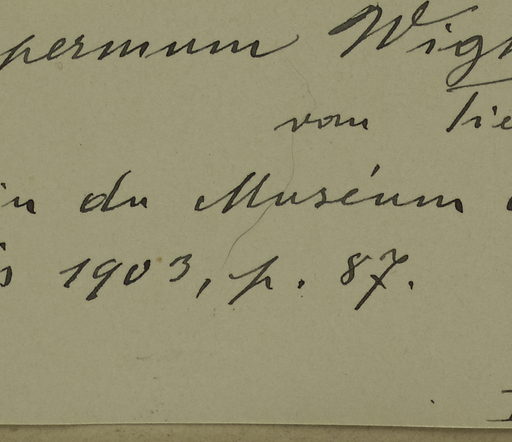 permum Wigh
van Tie
in du Muséum
is 1903, p. 87.